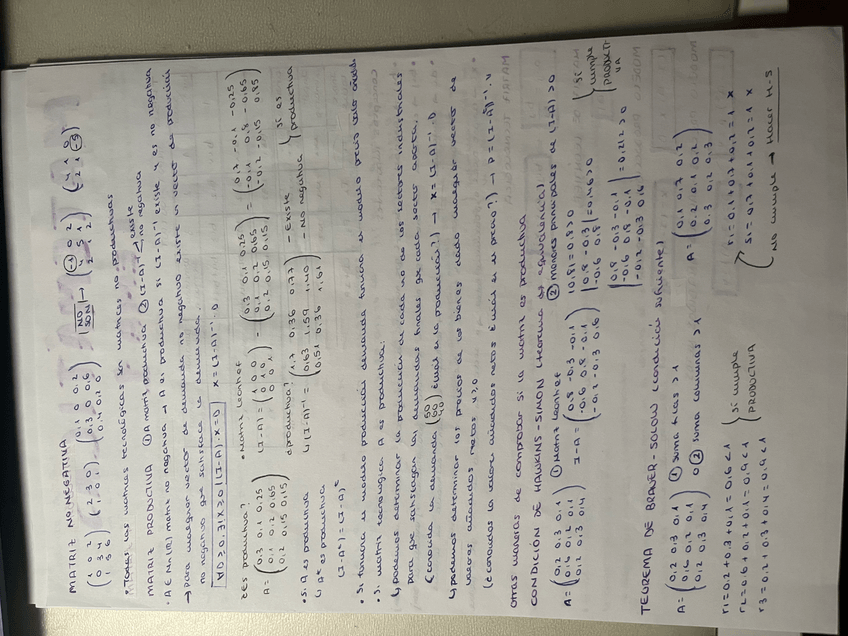 MATRIZ NO NEGATIVA
(1 0 2 / 0 3 4 / 1 5 6) · (2 3 0 / 1 0 1) · (0,1 0 0,2 / 0,3 0 0,6 / 0,4 0,2 0) |NO SON| → (-3 0 2 / 4 5 1 / 2 2 2) (4 1 0 / 2 1 -5)
• Todas las matrices tecnológicas son matrices no productivas
MATRIZ PRODUCTIVA ① A matriz productiva ② (I-A)⁻¹ existe no negativa
• A ∈ Mn(R) matriz no negativa → A es productiva si (I-A)⁻¹ existe y es no negativa
→ Para cualquier vector de demanda no negativo existe un vector de producción
no negativo que satisface la demanda.
∀D ≥ 0, ∃! X ≥ 0 | (I-A)·X = D X = (I-A)⁻¹·D
¿Es productiva? • Matriz Leontief
A = (0,3 0,1 0,25 / 0,1 0,2 0,65 / 0,2 0,15 0,15) (I-A) = (1 0 0 / 0 1 0 / 0 0 1) - (0,3 0,1 0,25 / 0,1 0,2 0,65 / 0,2 0,15 0,15) = (0,7 -0,1 -0,25 / -0,1 0,8 -0,65 / -0,2 -0,15 0,85)
• Si A es productiva ¿Productiva?
↳ Aᵗ es productiva ↳ (I-A)⁻¹ = (1,7 0,36 0,77 / 0,63 1,59 1,40 / 0,51 0,36 1,61) - Existe - No negativa } Sí es productiva
(I-Aᵗ) = (I-A)ᵗ
• Si funciona el modelo producción demanda funciona el modelo precio valor añadido
• Si matriz tecnológica A es productiva:
↳ podemos determinar la producción de cada uno de los sectores industriales
para que satisfagan las demandas finales que cada sector aporta.
(conocida la demanda (50 / 60 / 40) ¿cuál es la producción?) → X = (I-A)⁻¹·D
↳ podemos determinar los precios de los bienes dado cualquier vector de
valores añadidos netos V ≥ 0
(conocidos los valores añadidos netos ¿cuál es el precio?) → P = (I-Aᵗ)⁻¹·V
Otras maneras de comprobar si la matriz es productiva
CONDICIÓN DE HAWKINS-SIMON (teorema de equivalencia)
A = (0,2 0,3 0,1 / 0,6 0,2 0,1 / 0,2 0,3 0,4) ① Matriz Leontief I-A = (0,8 -0,3 -0,1 / -0,6 0,8 -0,1 / -0,2 -0,3 0,6) ② menores principales de (I-A) > 0
|0,8| = 0,8 > 0
|0,8 -0,3 / -0,6 0,8| = 0,46 > 0
|0,8 -0,3 -0,1 / -0,6 0,8 -0,1 / -0,2 -0,3 0,6| = 0,212 > 0
} Sí cumple PRODUCTIVA
TEOREMA DE BRAUER-SOLOW (condición suficiente)
A = (0,2 0,3 0,1 / 0,6 0,2 0,1 / 0,2 0,3 0,4) ① suma filas > 1 o ② suma columnas > 1 A = (0,1 0,7 0,2 / 0,2 0,1 0,2 / 0,3 0,2 0,3)
r1 = 0,2 + 0,3 + 0,1 = 0,6 < 1
r2 = 0,6 + 0,2 + 0,1 = 0,9 < 1
r3 = 0,2 + 0,3 + 0,4 = 0,9 < 1
} Sí cumple PRODUCTIVA
r1 = 0,1 + 0,7 + 0,2 = 1 x
s1 = 0,7 + 0,1 + 0,2 = 1 x
No cumple → Hacer H-S